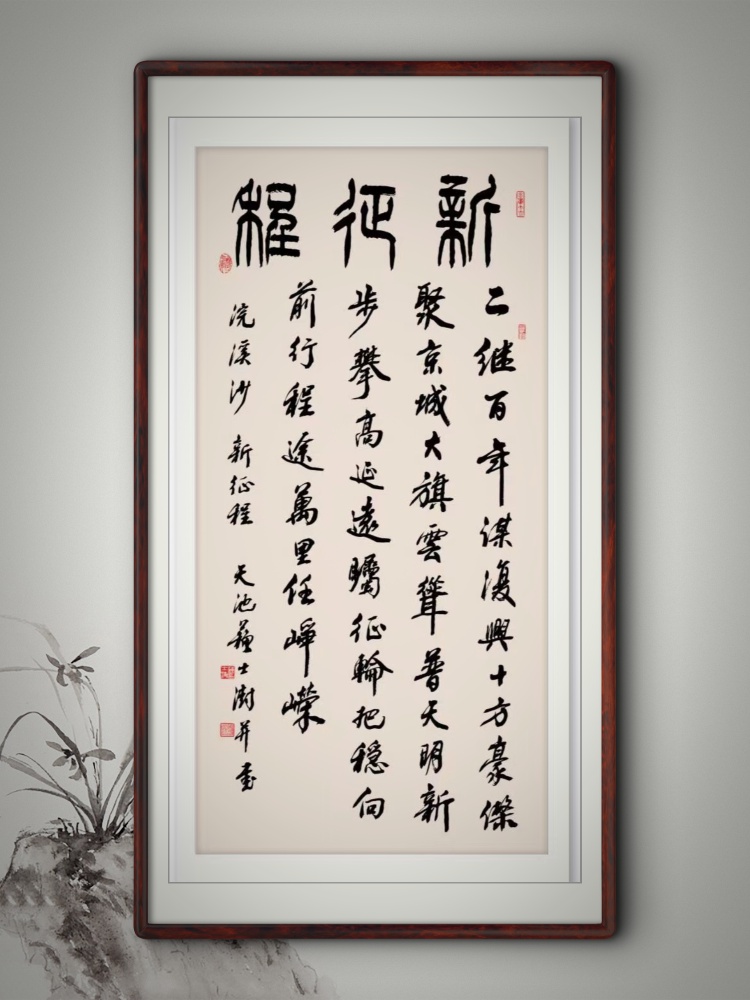 新征程
二继百年谋復興十方豪傑
聚京城大旗雲聳普天明新
步攀高延遠矚征輪把穩向
前行程途萬里任崢嶸
浣溪沙 新征程 天池蘇士澍并書